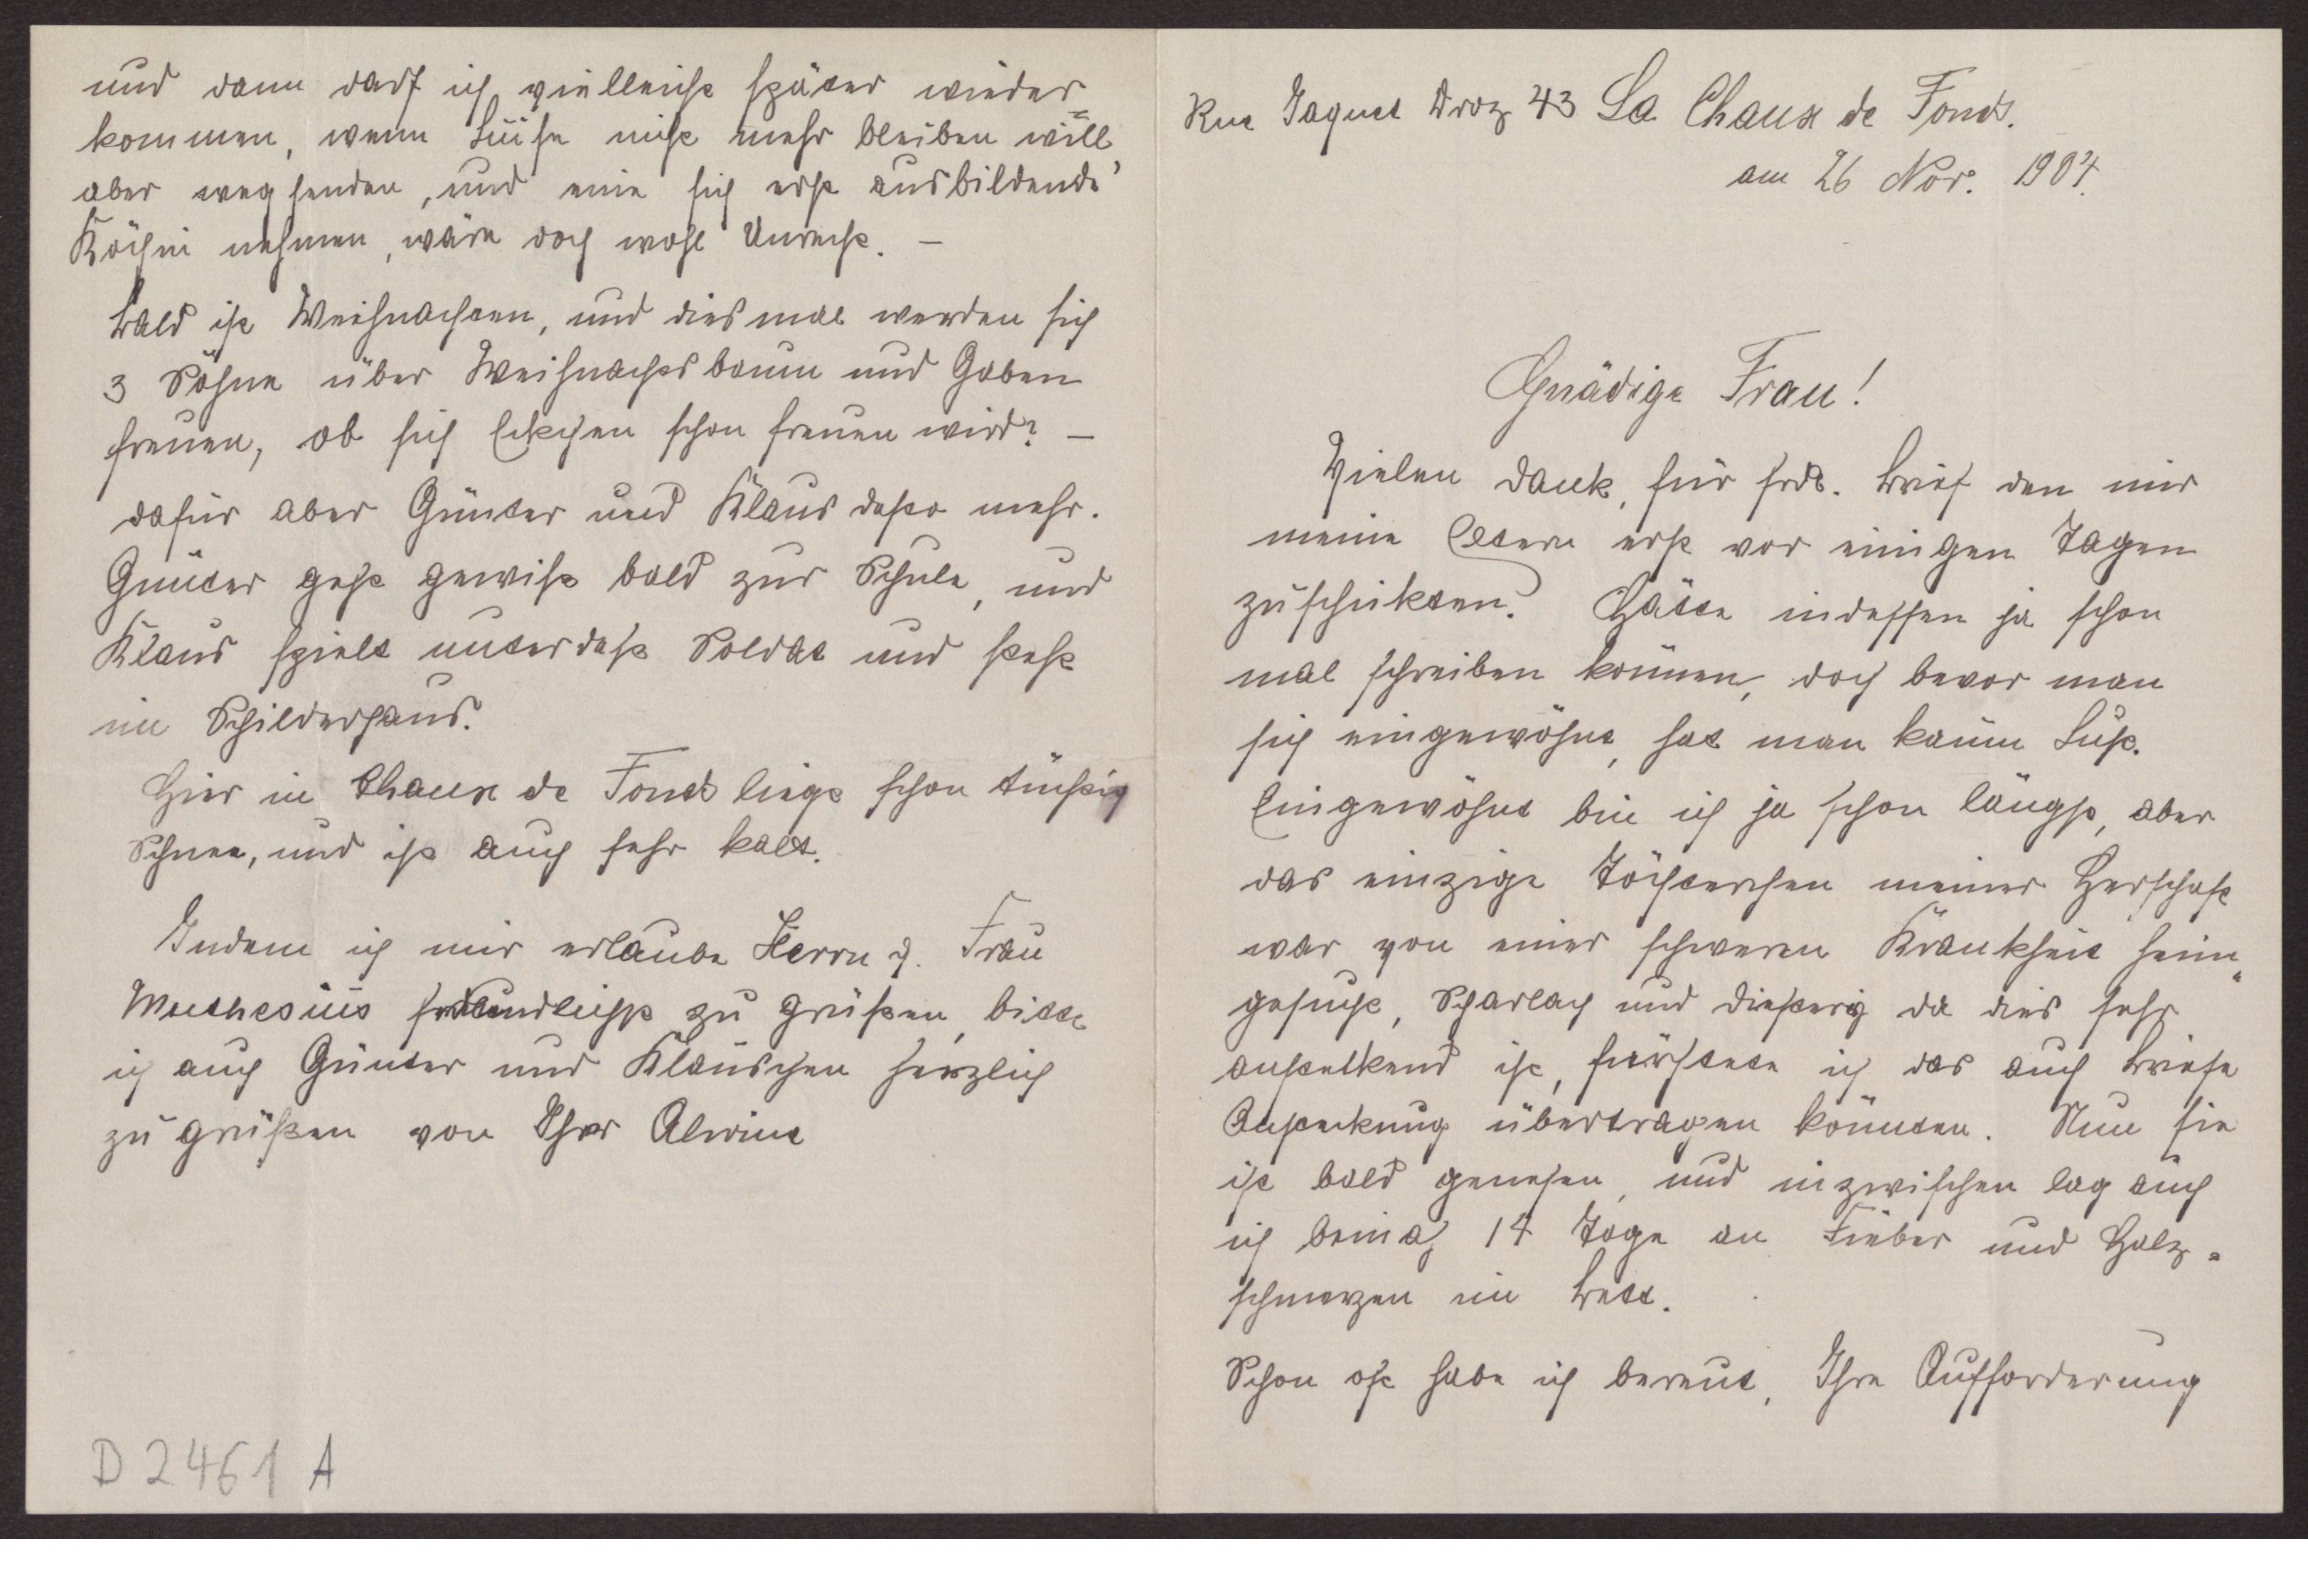 Rue Jaquet Droz 43 La Chaux de Fonds.
am 26 Nov. 1904.
Gnädige Frau!
Vielen Dank, für frdl. Brief den mir
meine Eltern erst vor einigen Tagen
zuschickten. Hätte indessen ja schon
mal schreiben können, doch bevor man
sich eingewöhnt, hat man kaum Lust.
Eingewöhnt bin ich ja schon längst, aber
das einzige Töchterchen meiner Herschaft
war von einer schweren Krankheit heim"
gesucht, Scharlach und Diefterig da dies sehr
anstekend ist, fürchtete ich das auch Briefe
Ansteckung übertragen könnten. Nun sie
ist bald genesen, und inzwischen lag auch
ich beinah 14 Tage an Fieber und Halz=
schmerzen im Bett.
Schon oft habe ich bereut, Ihre Aufforderung
und dann darf ich vielleicht später wieder=
kommen, wenn Luise nicht mehr bleiben will,
aber wegsenden, und eine sich erst ausbildende
Köchin nehmen, wäre doch wohl Unrecht. —
Bald ist Weihnachten, und diesmal werden sich
3 Söhne über Weihnachtsbaum und Gaben
freuen, ob sich Eckchen schon freuen wird? —
dafür aber Günter und Klaus desto mehr.
Günter geht gewiß bald zur Schule, und
Klaus spielt unterdeß Soldat und steht
im Schilderhaus.
Hier in Chaux de Fonds liegt schon tüchtig
Schnee, und ist auch sehr kalt.
Indem ich mir erlaube Herrn u. Frau
Muthesius freundlichst zu grüßen, bitte
ich auch Günter und Kläuschen herzlich
zu grüßen von Ihrer Alwine
D 2461 A